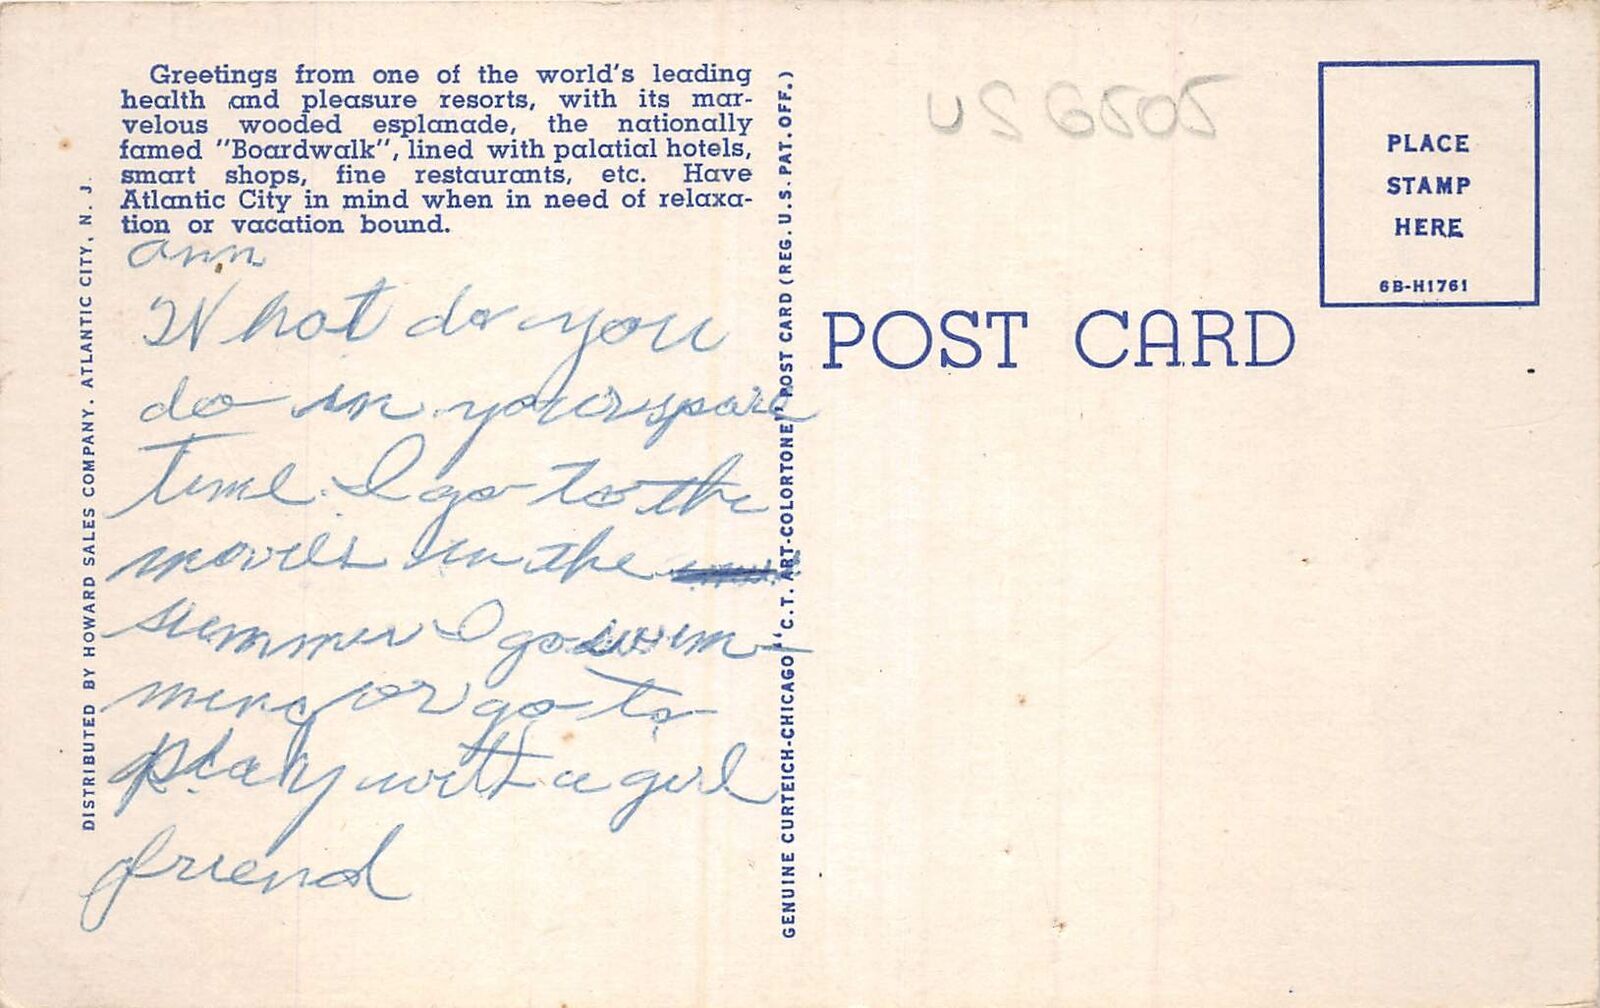 Greetings from one of the world's leading
health and pleasure resorts, with its mar-
velous wooded esplanade, the nationally
famed "Boardwalk", lined with palatial hotels,
smart shops, fine restaurants, etc. Have
Atlantic City in mind when in need of relaxa-
tion or vacation bound.
Ann
What do you
do in your spare
time. I go to the
movies in the
summer I go swim-
ming or go to
play with a girl
friend
DISTRIBUTED BY HOWARD SALES COMPANY. ATLANTIC CITY, N. J.
GENUINE CURTEICH-CHICAGO "C.T. ART-COLORTONE" POST CARD (REG. U.S. PAT. OFF.)
US 6505
POST CARD
PLACE
STAMP
HERE
6B-H1761